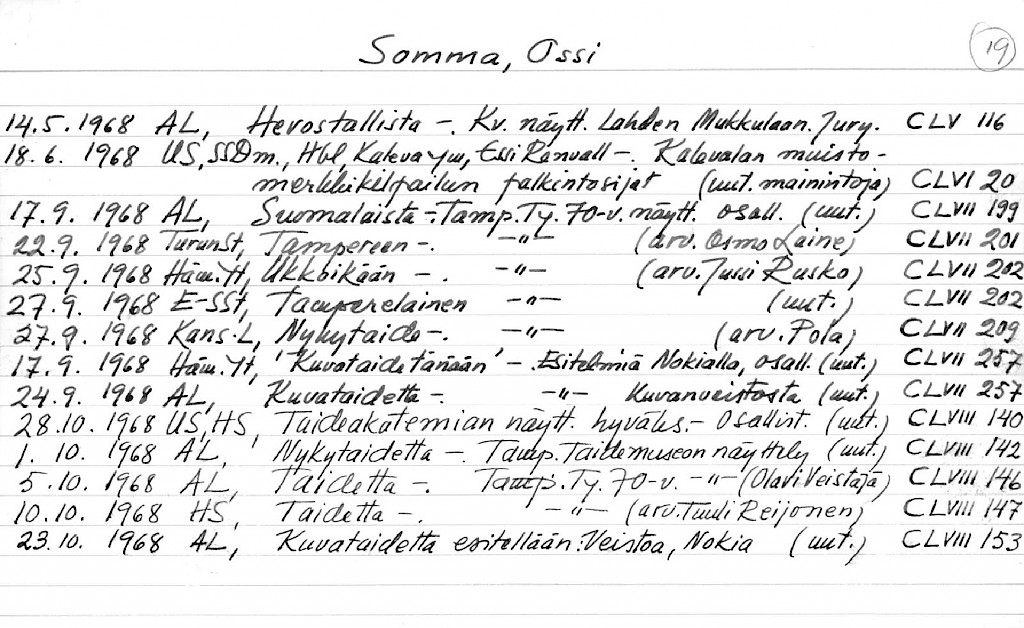 Somma, Ossi
19
14.5.1968 AL, Hevostallista -. Kv. näytt. Lahden Mukkulaan. Jury. CLV 116
18.6. 1968 US, SSDm., Hbl, Kaleva ym, Essi Renvall -. Kalevalan muisto-
merkkikilpailun palkintosijat (uut. mainintoja) CLVI 20
17.9. 1968 AL, Suomalaista -. Tamp. Ty. 70-v. näytt. osall. (uut.) CLVII 199
22.9. 1968 TurunSt, Tampereen -. -"- (arv. Osmo Laine) CLVII 201
25.9. 1968 Häm.Yt, Ukkoikään -. -"- (arv. Jussi Rusko) CLVII 202
27.9. 1968 E-SSt, Tamperelainen -"- (uut.) CLVII 202
27.9. 1968 Kans.L, Nykytaide -. -"- (arv. Pola) CLVII 209
17.9. 1968 Häm.Yt, 'Kuvataide tänään' -. Esitelmiä Nokialla, osall. (uut.) CLVII 257
24.9. 1968 AL, Kuvataidetta -. -"- Kuvanveistosta (uut.) CLVII 257
28.10.1968 US, HS, Taideakatemian näytt. hyväks. - Osallist. (uut.) CLVIII 140
1. 10. 1968 AL, Nykytaidetta -. Tamp. Taidemuseon näyttely (uut.) CLVIII 142
5.10. 1968 AL, Taidetta -. Tamp. Ty. 70-v. -"- (Olavi Veistäjä) CLVIII 146
10.10. 1968 HS, Taidetta -. -"- (arv. Tuuli Reijonen) CLVIII 147
23.10. 1968 AL, Kuvataidetta esitellään: Veistoa, Nokia (uut.) CLVIII 153